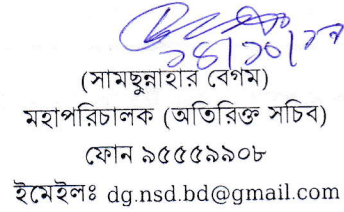 ১৪/১০/১৭
(সামছুন্নাহার বেগম)
মহাপরিচালক (অতিরিক্ত সচিব)
ফোন ৯৫৫৫৯৯০৮
ইমেইলঃ dg.nsd.bd@gmail.com